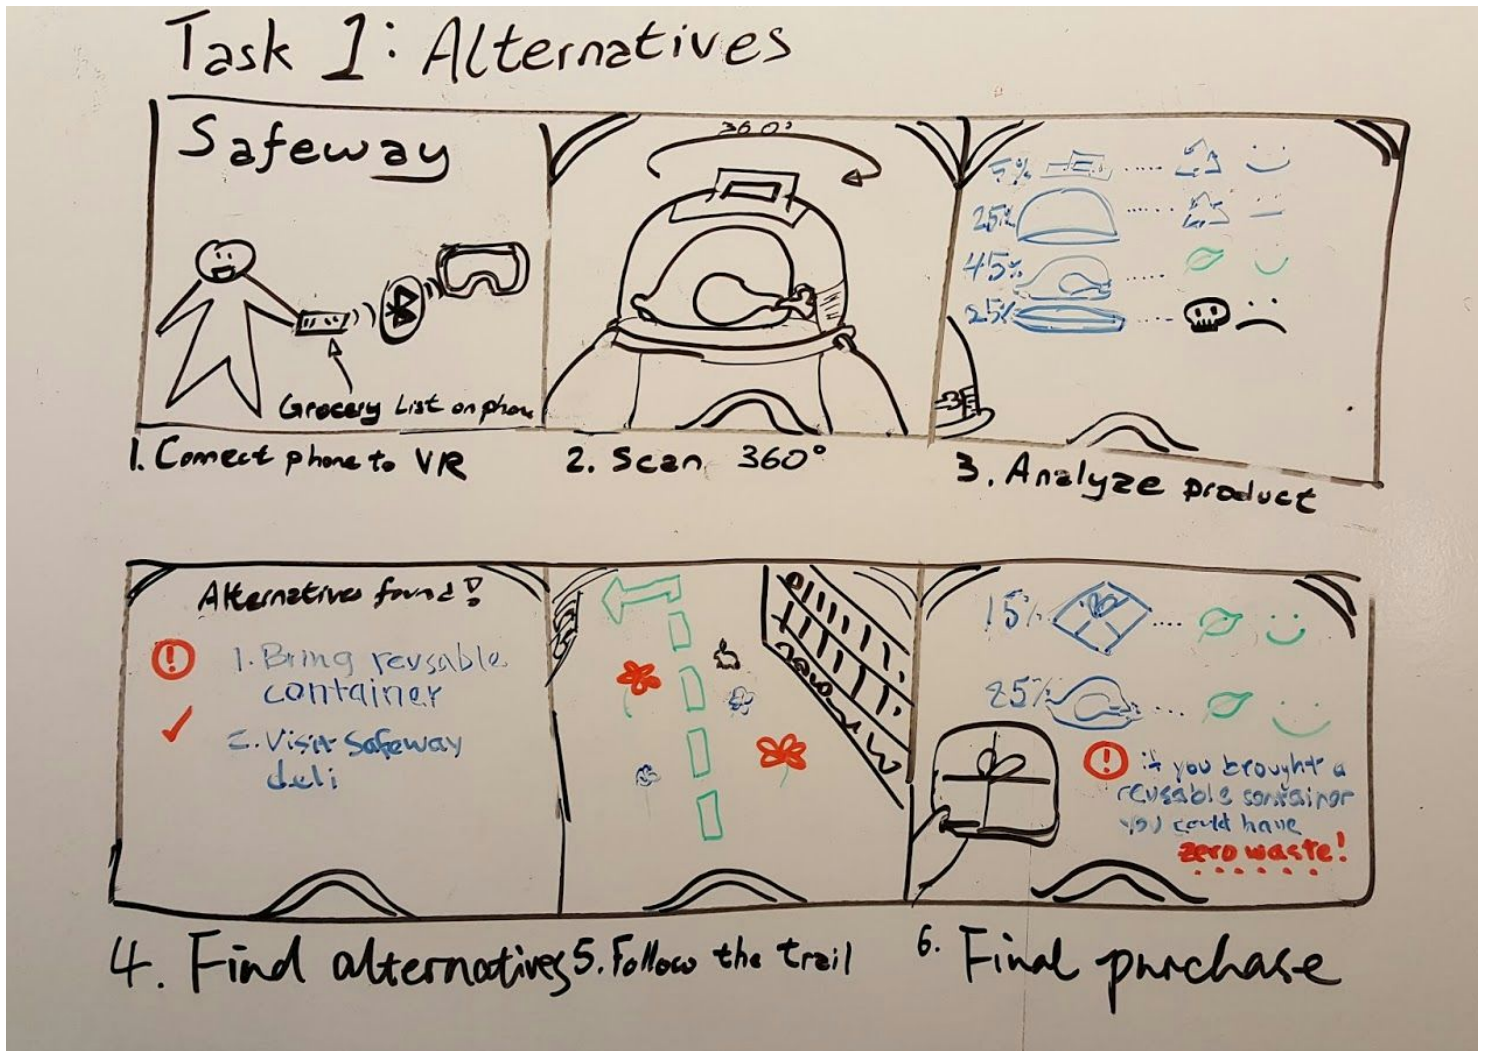 Task 1: Alternatives
Safeway
Grocery List on phone
1. Connect phone to VR
360°
2. Scan 360°
5%
25%
45%
25%
3. Analyze product
Alternatives found!
! 1. Bring reusable
container
2. Visit Safeway
deli
4. Find alternatives
5. Follow the trail
15%
85%
! if you brought a
reusable container
you could have
zero waste!
6. Final purchase